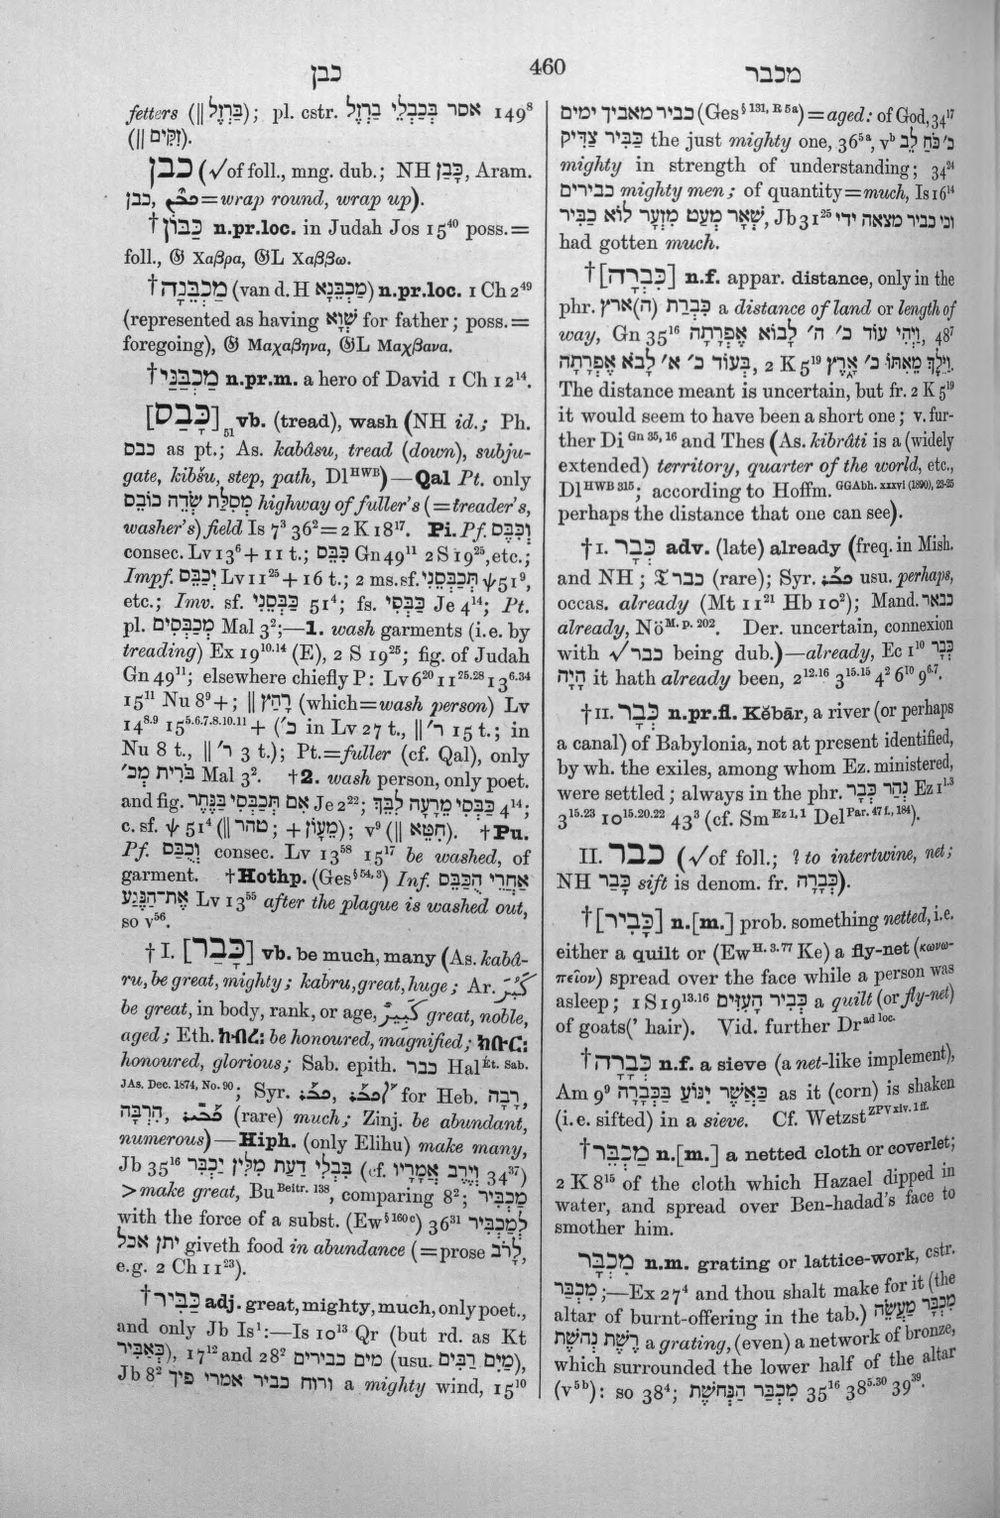 כבן
460
מכבר
fetters (|| בַּרְזֶל); pl. cstr. אסר בְּכַבְלֵי בַרְזֶל 149⁸
(|| זִקִּים).
כבן (√of foll., mng. dub.; NH כָּבַן, Aram.
כבן, = wrap round, wrap up).
† כַּבּוֹן n.pr.loc. in Judah Jos 15⁴⁰ poss. =
foll., 𝔊 Χαβρα, 𝔊L Χαββω.
† מַכְבֵּנָה (van d. H מַכְבֵּנָא) n.pr.loc. 1 Ch 2⁴⁹
(represented as having שְׁוָא for father; poss. =
foregoing), 𝔊 Μαχαβηνα, 𝔊L Μαχβανα.
† מַכְבַּנַּי n.pr.m. a hero of David 1 Ch 12¹⁴.
[כָּבַס]₅₁ vb. (tread), wash (NH id.; Ph.
כבס as pt.; As. kabâsu, tread (down), subju-
gate, kibšu, step, path, Dl^HWB)—Qal Pt. only
מְסִלַּת שְׂדֵה כוֹבֵס highway of fuller's (= treader's,
washer's) field Is 7³ 36² = 2 K 18¹⁷. Pi. Pf. וְכִבֶּס
consec. Lv 13⁶ + 11 t.; כִּבֵּס Gn 49¹¹ 2 S 19²⁵, etc.;
Impf. יְכַבֵּס Lv 11²⁵ + 16 t.; 2 ms. sf. תְּכַבְּסֵנִי ψ 51⁹,
etc.; Imv. sf. כַּבְּסֵנִי 51⁴; fs. כַּבְּסִי Je 4¹⁴; Pt.
pl. מְכַבְּסִים Mal 3²;—1. wash garments (i.e. by
treading) Ex 19¹⁰·¹⁴ (E), 2 S 19²⁵; fig. of Judah
Gn 49¹¹; elsewhere chiefly P: Lv 6²⁰ 11²⁵·²⁸ 13⁶·³⁴
15¹¹ Nu 8⁹ +; || רָחַץ (which = wash person) Lv
14⁸·⁹ 15⁵·⁶·⁷·⁸·¹⁰·¹¹ + (כ׳ in Lv 27 t., || ר׳ 15 t.; in
Nu 8 t., || ר׳ 3 t.); Pt. = fuller (cf. Qal), only
בֹּרִית מְכ׳ Mal 3². †2. wash person, only poet.
and fig. אִם תְּכַבְּסִי בַּנֶּתֶר Je 2²²; כַּבְּסִי מֵרָעָה לִבֵּךְ 4¹⁴;
c. sf. ψ 51⁴ (|| טהר; + מֵעָוֹן); v⁹ (|| חִטֵּא). †Pu.
Pf. וְכֻבַּס consec. Lv 13⁵⁸ 15¹⁷ be washed, of
garment. †Hothp. (Ges§⁵⁴,³) Inf. אַחֲרֵי הֻכַּבֵּס
אֶת־הַנֶּגַע Lv 13⁵⁵ after the plague is washed out,
so v⁵⁶.
† I. [כָּבַר] vb. be much, many (As. kabâ-
ru, be great, mighty; kabru, great, huge; Ar. كَبُرَ
be great, in body, rank, or age, كَبِيرٌ great, noble,
aged; Eth. ከብረ: be honoured, magnified; ክቡር:
honoured, glorious; Sab. epith. כבר Hal^Ét. Sab.
JAs. Dec. 1874, No. 90; Syr. for Heb. רָבָה,
הִרְבָּה, (rare) much; Zinj. be abundant,
numerous)—Hiph. (only Elihu) make many,
Jb 35¹⁶ בִּבְלִי דַעַת מִלִּין יַכְבִּר (cf. וְיֶרֶב אֲמָרָיו 34³⁷)
> make great, Bu^Beitr. 138, comparing 8²; מַכְבִּיר
with the force of a subst. (Ew§¹⁶⁰ᶜ) 36³¹ לְמַכְבִּיר
יתן אכל giveth food in abundance (= prose לָרֹב,
e.g. 2 Ch 11²³).
† כַּבִּיר adj. great, mighty, much, only poet.,
and only Jb Is¹:—Is 10¹³ Qr (but rd. as Kt
כְּאַבִּיר), 17¹² and 28² מים כבירים (usu. מַיִם רַבִּים),
Jb 8² ורוח כביר אמרי פיך a mighty wind, 15¹⁰
כביר מאביך ימים (Ges§¹³¹, ᴿ ⁵ᵃ) = aged: of God, 34¹⁷
צַדִּיק כַּבִּיר the just mighty one, 36⁵ᵃ, vᵇ כ׳ כֹּחַ לֵב
mighty in strength of understanding; 34²⁴
כבירים mighty men; of quantity = much, Is 16¹⁴
שְׁאָר מְעַט מִזְעָר לוֹא כַבִּיר, Jb 31²⁵ וכי כביר מצאה ידי
had gotten much.
† [כְּבָרָה] n.f. appar. distance, only in the
phr. כִּבְרַת (ה)ארץ a distance of land or length of
way, Gn 35¹⁶ וַיְהִי עוֹד כ׳ ה׳ לָבוֹא אֶפְרָתָה, 48⁷
בְּעוֹד כ׳ א׳ לָבֹא אֶפְרָתָה, 2 K 5¹⁹ וַיֵּלֶךְ מֵאִתּוֹ כ׳ אָרֶץ.
The distance meant is uncertain, but fr. 2 K 5¹⁹
it would seem to have been a short one; v. fur-
ther Di^Gn 35, 16 and Thes (As. kibrâti is a (widely
extended) territory, quarter of the world, etc.,
Dl^HWB 315; according to Hoffm. GGAbh. xxxvi (1890), 23-25
perhaps the distance that one can see).
† I. כְּבָר adv. (late) already (freq. in Mish.
and NH; 𝔗 כבר (rare); Syr. usu. perhaps,
occas. already (Mt 11²¹ Hb 10²); Mand. כבאר
already, Nö^M. p. 202. Der. uncertain, connexion
with √כבר being dub.)—already, Ec 1¹⁰ כְּבָר
הָיָה it hath already been, 2¹²·¹⁶ 3¹⁵·¹⁵ 4² 6¹⁰ 9⁶·⁷.
† II. כְּבָר n.pr.fl. Kĕbār, a river (or perhaps
a canal) of Babylonia, not at present identified,
by wh. the exiles, among whom Ez. ministered,
were settled; always in the phr. נְהַר כְּבָר Ez 1¹·³
3¹⁵·²³ 10¹⁵·²⁰·²² 43³ (cf. Sm^Ez 1, 1 Del^Par. 47 f., 184).
II. כבר (√of foll.; ? to intertwine, net;
NH כָּבַר sift is denom. fr. כְּבָרָה).
† [כָּבִיר] n.[m.] prob. something netted, i.e.
either a quilt or (Ew^H. 3. 77 Ke) a fly-net (κωνω-
πεῖον) spread over the face while a person was
asleep; 1 S 19¹³·¹⁶ כְּבִיר הָעִזִּים a quilt (or fly-net)
of goats(' hair). Vid. further Dr^ad loc.
† כְּבָרָה n.f. a sieve (a net-like implement),
Am 9⁹ כַּאֲשֶׁר יִנּוֹעַ בַּכְּבָרָה as it (corn) is shaken
(i.e. sifted) in a sieve. Cf. Wetzst^ZPV xiv. 1 ff.
† מַכְבֵּר n.[m.] a netted cloth or coverlet;
2 K 8¹⁵ of the cloth which Hazael dipped in
water, and spread over Ben-hadad's face to
smother him.
מִכְבָּר n.m. grating or lattice-work, cstr.
מִכְבַּר;—Ex 27⁴ and thou shalt make for it (the
altar of burnt-offering in the tab.) מִכְבָּר מַעֲשֵׂה
רֶשֶׁת נְחֹשֶׁת a grating, (even) a network of bronze,
which surrounded the lower half of the altar
(v⁵ᵇ): so 38⁴; מִכְבַּר הַנְּחֹשֶׁת 35¹⁶ 38⁵·³⁰ 39³⁹.